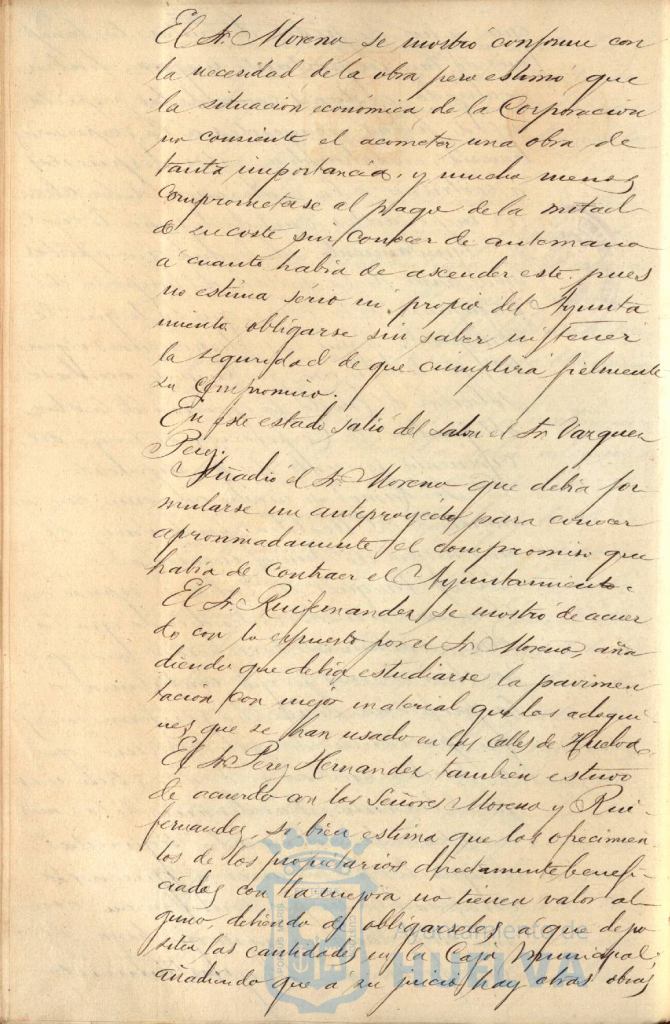 El Sr. Moreno se mostró conforme con
la necesidad de la obra pero estimó que
la situación económica de la Corporacion
no consiente el acometer una obra de
tanta importancia, y mucho menos
comprometerse al pago de la mitad
de su coste sin conocer de antemano
á cuanto habia de ascender este. pues
no estima sério ni propio del Ayunta
miento obligarse sin saber ni tener
la seguridad de que cumplirá fielmente
su compromiso.
En este estado salió del salon el Sr. Vazquez
Perez.
Añadió el Sr. Moreno que debia for
mularse un anteproyecto para conocer
aproximadamente el compromiso que
habia de contraer el Ayuntamiento.
El Sr. Ruifernandez se mostró de acuer
do con lo expuesto por el Sr. Moreno, aña
diendo que debia estudiarse la pavimen
tación con mejor material que los adoqui
nes que se han usado en las calles de Huelva.
El Sr. Perez Hernandez tambien estuvo
de acuerdo con los Señores Moreno y Rui-
fernandez, si bien estima que los ofrecimien
tos de los propietarios directamente benefi-
ciados con la mejora no tienen valor al
guno debiendo de obligarseles a que depo
siten las cantidades en la Caja Municipal,
añadiendo que á su juicio hay otras obras
Ayuntamiento de
HUELVA